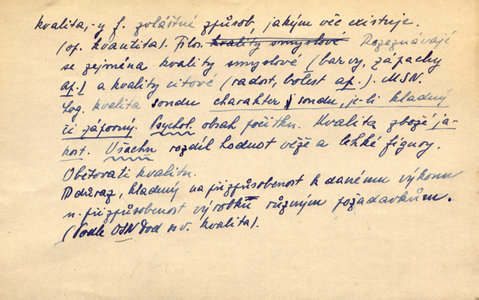 kvalita, -y f. zvláštní způsob, jakým věc existuje.
(op. kvantita). Filos. kvality smyslové Rozeznávají
se zejména kvality smyslové (barvy, zápachy
ap.) a kvality citové (radost, bolest ap.). MSN.
Log. kvalita soudu charakter soudu, je-li kladný
či záporný. Psychol. obsah počitku. Kvalita zboží ja-
kost. Všachu rozdíl hodnot věže a lehké figury.
Obětovati kvalitu.
Důraz, kladený na přizpůsobenost k danému výkonu
n. přizpůsobenost výrobků různým požadavkům.
(Podle OSN Dod sv. kvalita).